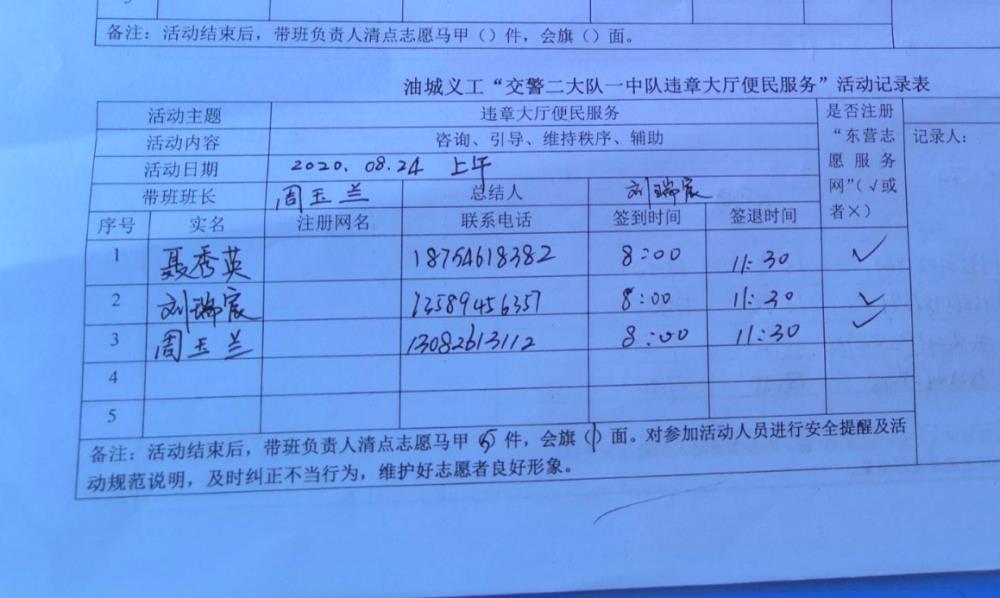 备注：活动结束后，带班负责人清点志愿马甲（）件，会旗（）面。
油城义工“交警二大队一中队违章大厅便民服务”活动记录表
活动主题 违章大厅便民服务
活动内容 咨询、引导、维持秩序、辅助
活动日期 2020.08.24 上午
带班班长 周玉兰 总结人 刘瑞宸
是否注册
“东营志
愿服务
网”(√或
者×)
记录人：
序号 实名 注册网名 联系电话 签到时间 签退时间
1 聂秀英 18754618382 8:00 11:30 ✓
2 刘瑞宸 13589456357 8:00 11:30 ✓
3 周玉兰 13082613112 8:00 11:30 ✓
4
5
备注：活动结束后，带班负责人清点志愿马甲（5）件，会旗（1）面。对参加活动人员进行安全提醒及活
动规范说明，及时纠正不当行为，维护好志愿者良好形象。